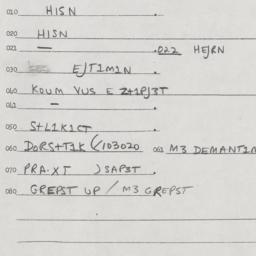 010 HISN
020 HISN
021 — .022 HEJRN
030 EJT1M1N
040 KOUM VUS E Z+1PJ3T
041 —
050 S+L1K1CT
060 DORS+T1K (103020 061 M3 DEMANT1N
070 PRA.XT )SAPST
080 GREPST UP / M3 GREPST